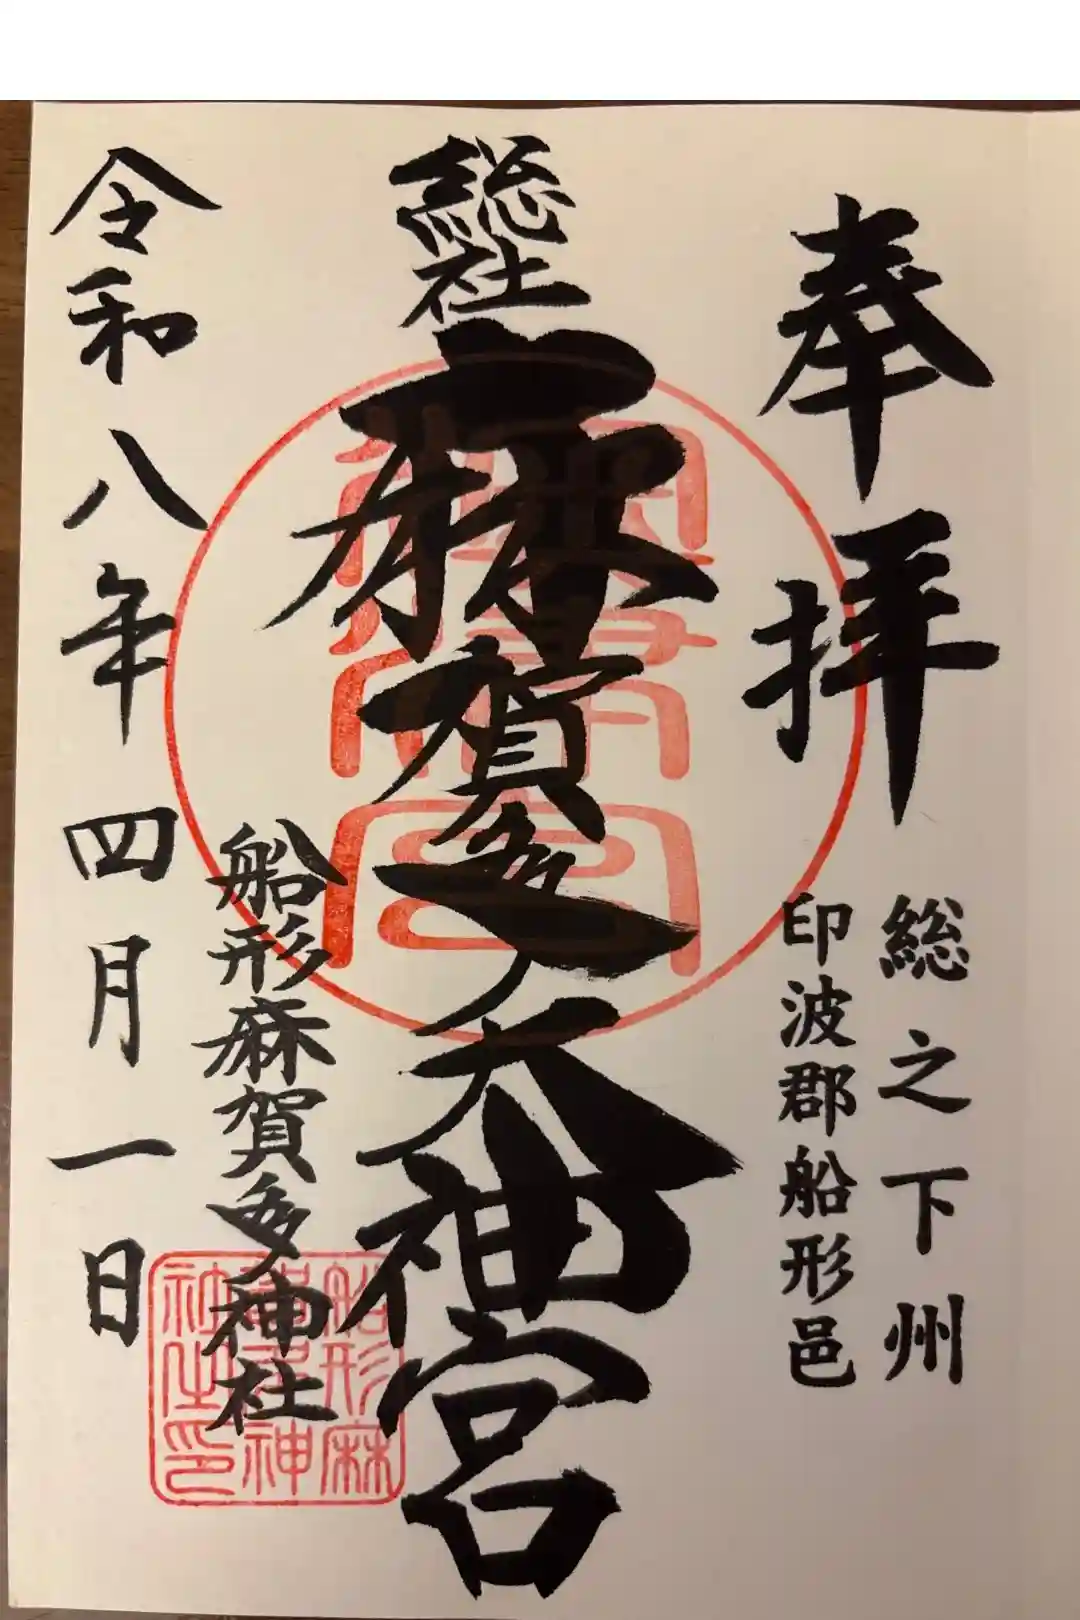 奉拝
総之下州
印波郡船形邑
総社
麻賀多大神宮
船形麻賀多神社
令和八年四月一日
船形麻
賀多神
社之印